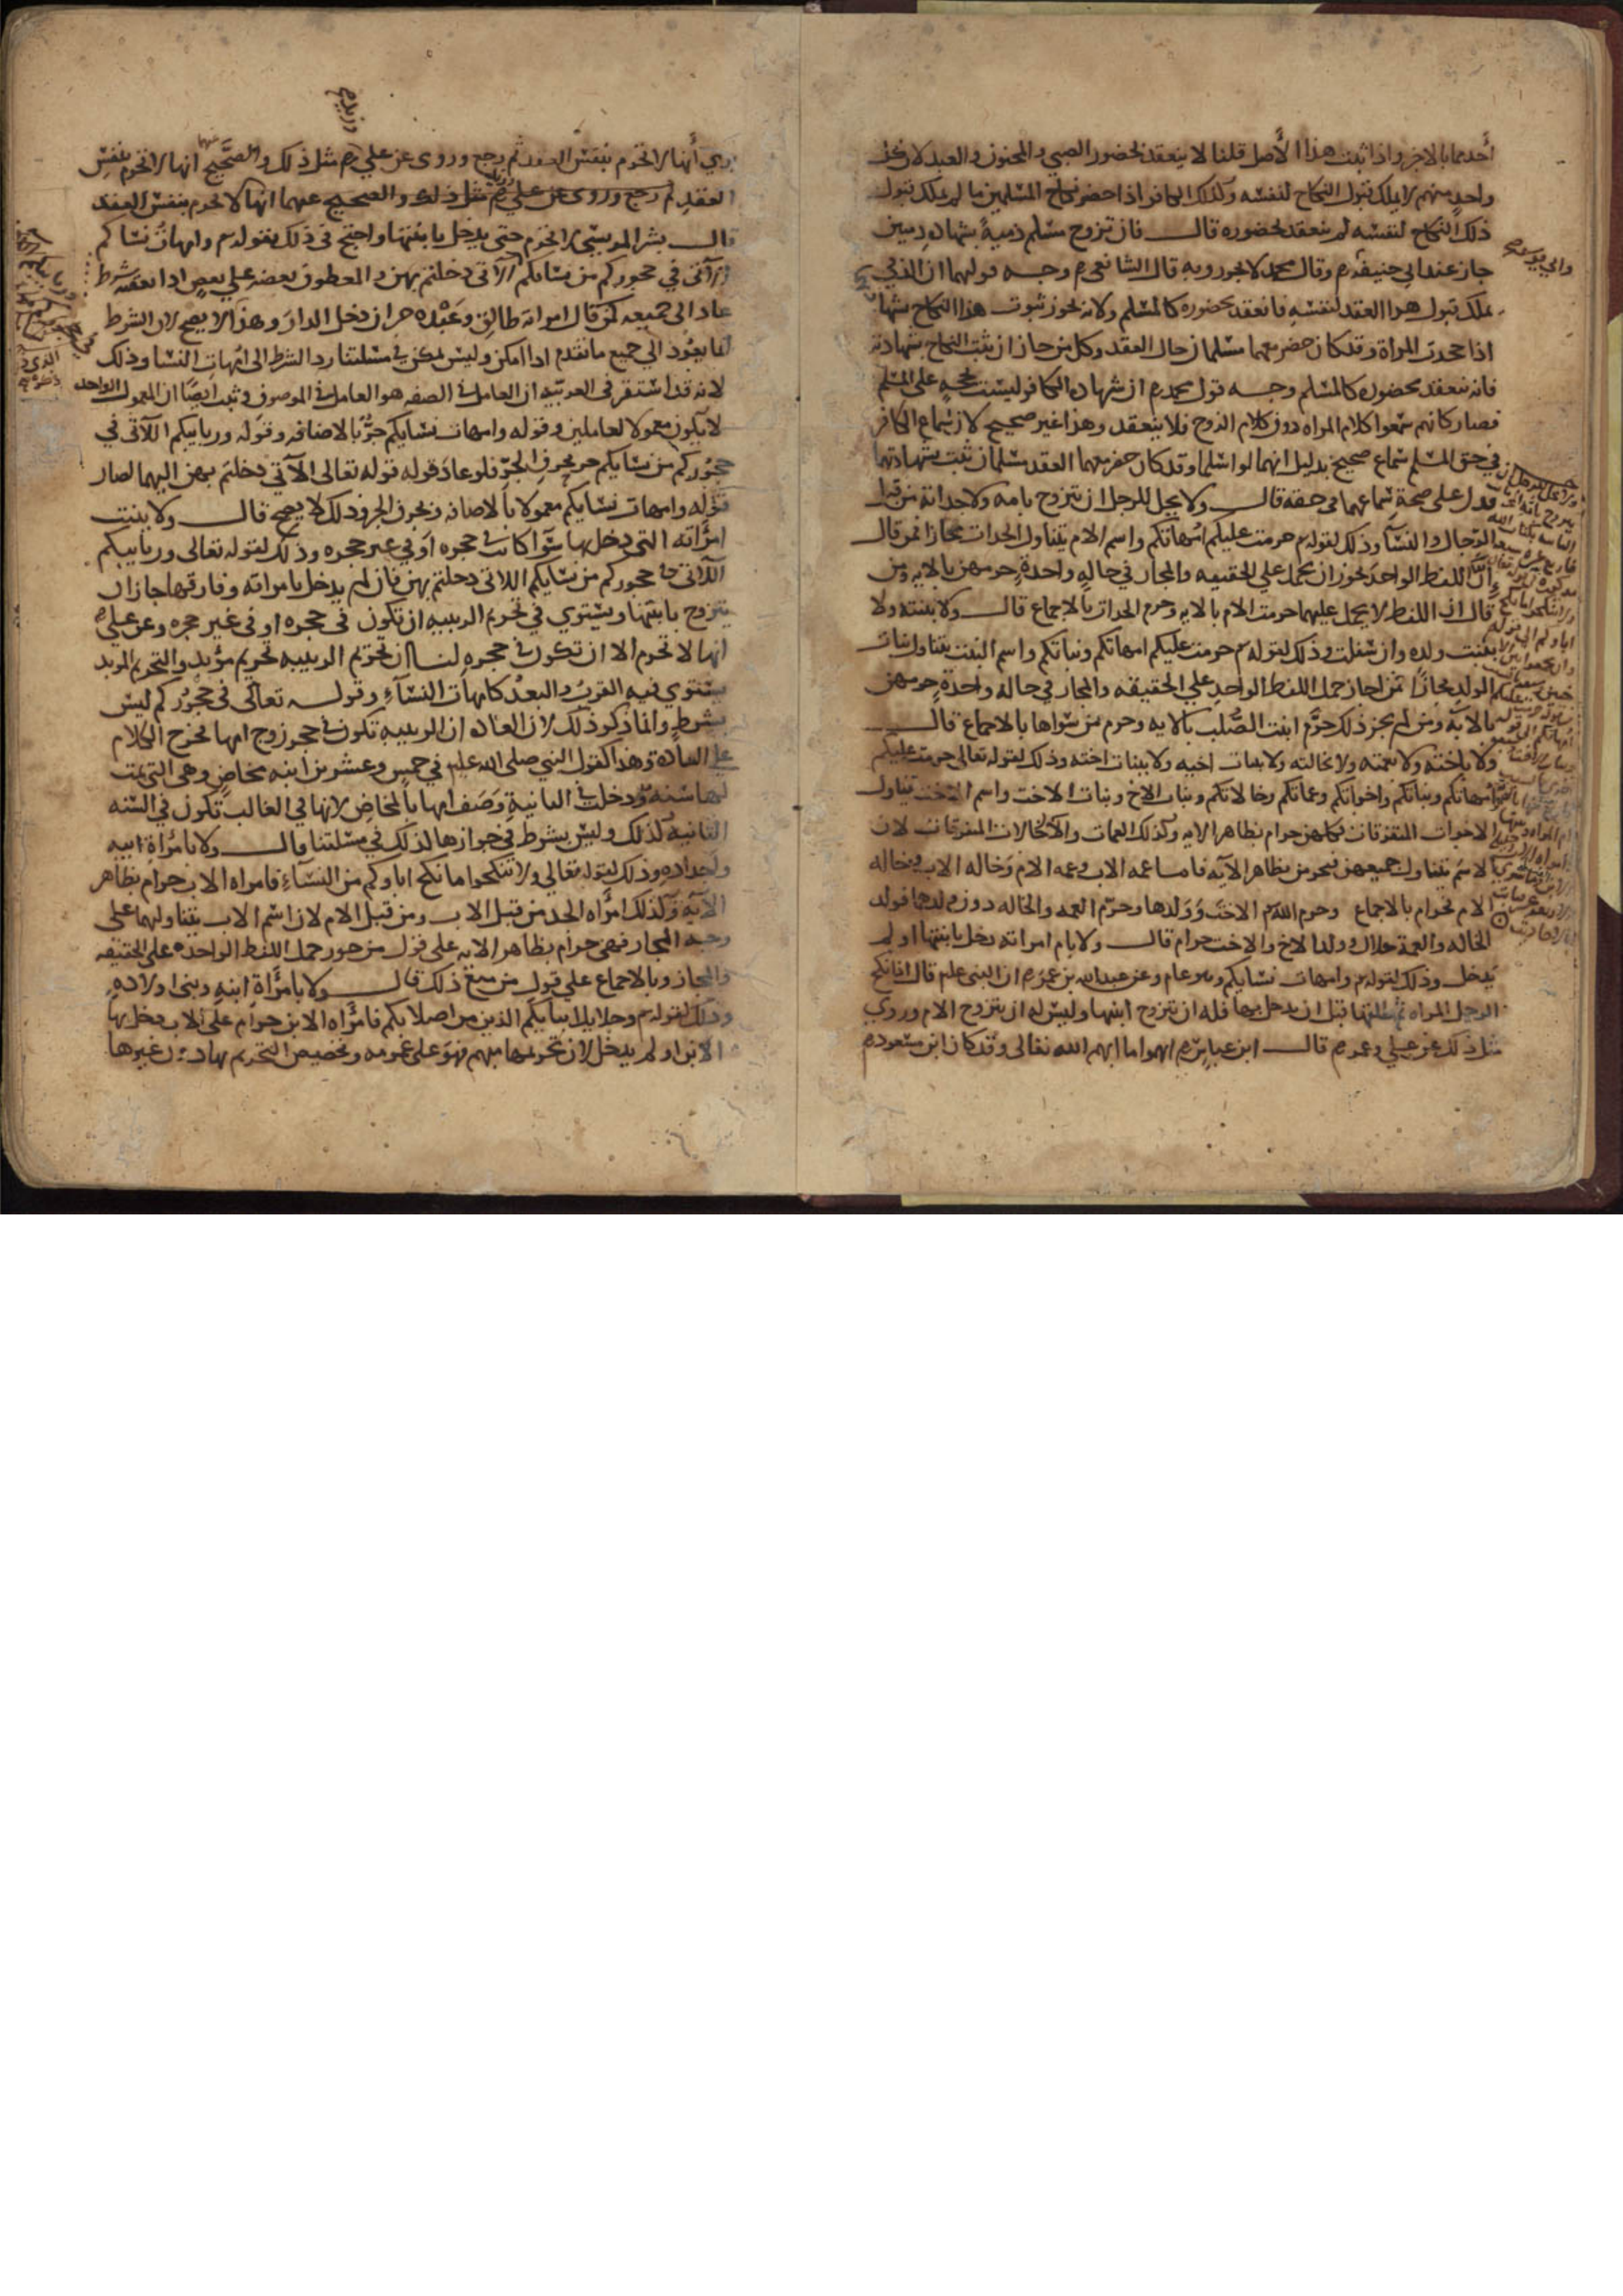 أحدهما بالاخر واذا ثبت هذا الأصل قلنا لا ينعقد بحضور الصبي والمجنون والعبد لان كل
واحد منهم لا يملك قبول النكاح لنفسه وكذلك الكافر اذا حضر نكاح المسلمين ما لم يملك قبول
ذلك النكاح لنفسه لم ينعقد بحضوره قال فان تزوج مسلم ذمية بشهادة ذميين
جاز عند ابي حنيفة رم وقال محمد لا يجوز وبه قال الشافعي رم وجه قولهما ان الذمي
يملك قبول هذا العقد لنفسه فانعقد بحضوره كالمسلم ولانه يجوز ثبوت هذا النكاح بشها
اذا جحدت المراة وقد كان حضر معهما مسلمان حال العقد وكل من جاز ان يثبت النكاح بشهادته
فانه ينعقد بحضوره كالمسلم وجه قول محمد رم ان شهادة الكافر ليست بحجة على المسلم
فصار كانهم سمعوا كلام المراه دون كلام الزوج فلا ينعقد وهذا غير صحيح لان سماع الكافر
في حق المسلم سماع صحيح بدليل انهما لو اسلما وقد كان حضر معهما العقد مسلمان ثبت بشهادتهما
فدل على صحة سماعهما في حقه قال ولا يحل للرجل ان يتزوج بامه ولا جداته من قبل
الرجال والنسآ وذلك لقوله تع حرمت عليكم امهاتكم واسم الام يتناول الجدات مجازا فمن قال
ان اللفظ الواحد يجوز ان يحمل علي الحقيقه والمجاز في حالة واحدة حرمهن بالايه ومن
قال ان اللفظ لا يحمل عليهما حرمت الام بالايه وحرم الجدات بالاجماع قال ولا بنته ولا
بنت ولده وان سفلت وذلك لقوله تع حرمت عليكم امهاتكم وبناتكم واسم البنت يتناول بنات
الولد مجازا فمن اجاز حمل اللفظ الواحد علي الحقيقه والمجاز في حالة واحدة حرمهن
بالاية ومن لم يجز ذلك حرم ابنت الصلب بالايه وحرم من سواها بالاجماع قال
ولا باخته ولا بعمته ولا بخالته ولا ببنات اخيه ولا ببنات اخته وذلك لقوله تعالى حرمت عليكم
امهاتكم وبناتكم واخواتكم وعماتكم وخالاتكم وبنات الاخ وبنات الاخت واسم الاخت يتناول
الاخوات المتفرقات فكلهن حرام بظاهر الايه وكذلك العمات والخالات المتفرقات لان
الاسم يتناول جميعهن فيحرمن بظاهر الآية فاما عمه الاب وعمه الام وخاله الاب وخاله
الام فحرام بالاجماع وحرم الله تع الاخت وولدها وحرم العمه والخاله دون ولدهما فولد
الخاله والعمة حلال وولد الاخ والاخت حرام قال ولا بام امراته دخل بابنتها او لم
يدخل وذلك لقوله تع وامهات نسايكم وهو عام وعن عبد الله بن عمر رم ان النبي علم قال اذا نكح
الرجل المراه ثم طلقها قبل ان يدخل بها فله ان يتزوج ابنتها وليس له ان يتزوج الام وروي
مثل ذلك عن علي وعمر رم قال ابن عباس رم ابهموا ما ابهم الله تعالى وقد كان ابن مسعود رم
وابي يوسف
يري أنها لا تحرم بنفس العقد ثم رجع وروى عن علي رم مثل ذلك والصحيح انها لا تحرم بنفس
عنهما
العقد ثم رجع وروى عن علي رم مثل ذلك والصحيح عنهما انها لا تحرم بنفس العقد
قال بشر المريسي لا تحرم حتى يدخل بابنتها واحتج في ذلك بقوله تع وامهات نسائكم
اللآتي في حجوركم من نسائكم اللاتي دخلتم بهن والمعطوف بعضه علي بعض اذا تعقبه شرط
عاد الى جميعه كمن قال امراته طالق وعبده حر ان دخل الدار وهذا لا يصح لان الشرط
انما يعود الي جميع ما تقدم اذا امكن وليس يمكن في مسئلتنا رد الشرط الى امهات النسا وذلك
لانه قد استقر في العربيه ان العامل في الصفه هو العامل في الموصوف وثبت ايضا ان المعمول الواحد
لا يكون معمولا لعاملين وقوله وامهات نسايكم جر بالاضافه وقوله وربايبكم اللآتي في
حجوركم من نسايكم جر بحرف الجر فلو عاد قوله قوله تعالى الآتي دخلتم بهن اليهما لصار
قوله وامهات نسايكم معمولا بالاضافه وبحرف الجر وذلك لا يصح قال ولا ببنت
امرأته التي دخل بها سوآ كانت في حجره أو في غير حجره وذلك لقوله تعالى وربايبكم
اللاتي في حجوركم من نسايكم اللاتي دخلتم بهن فان لم يدخل بامراته وفارقها جاز ان
يتزوج بابنتها ويستوي في تحريم الربيبه ان تكون في حجره او في غير حجره وعن علي رم
انها لا تحرم الا ان تكون في حجره لنا ان تحريم الربيبه تحريم مؤبد والتحريم الموبد
يستوي فيه القرب والبعد كامهات النسآء وقوله تعالى في حجوركم ليس
بشرط وانما ذكر ذلك لان العاده ان الربيبه تكون في حجر زوج امها فخرج الكلام
علي العادة وهذا كقول النبي صلى الله عليه في خمس وعشرين ابنه مخاض وهي التي تمت
لها سنة ودخلت في الثانية وصف امها بالمخاض لانها في الغالب تكون في السنه
الثانية كذلك وليس بشرط في جوازها كذلك في مسئلتنا قال ولا بامرأة ابيه
واجداده وذلك لقوله تعالي ولا تنكحوا ما نكح اباوكم من النسآء فامراه الاب حرام بظاهر
الآية وكذلك امرأه الجد من قبل الاب ومن قبل الام لان اسم الاب يتناولهما على
وجه المجاز فهي حرام بظاهر الايه على قول من جوز حمل اللفظ الواحد على الحقيقه
والمجاز وبالاجماع علي قول من منع ذلك قال ولا بامرأة ابنه وبنى اولاده
وذلك لقوله تع وحلايل ابنايكم الذين من اصلابكم فامرأه الابن حرام على الاب دخل بها
الابن او لم يدخل لان تحريمها مبهم فهو على عمومه وتخصيص التحريم بها دون غيرها